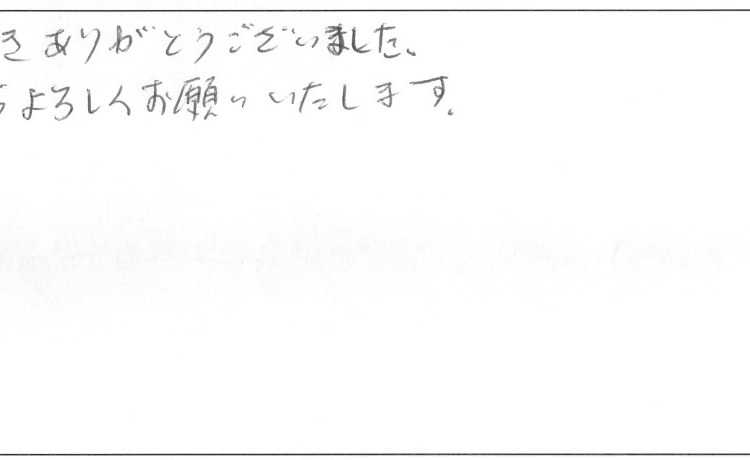 きありがとうございました。
よろしくお願いいたします。